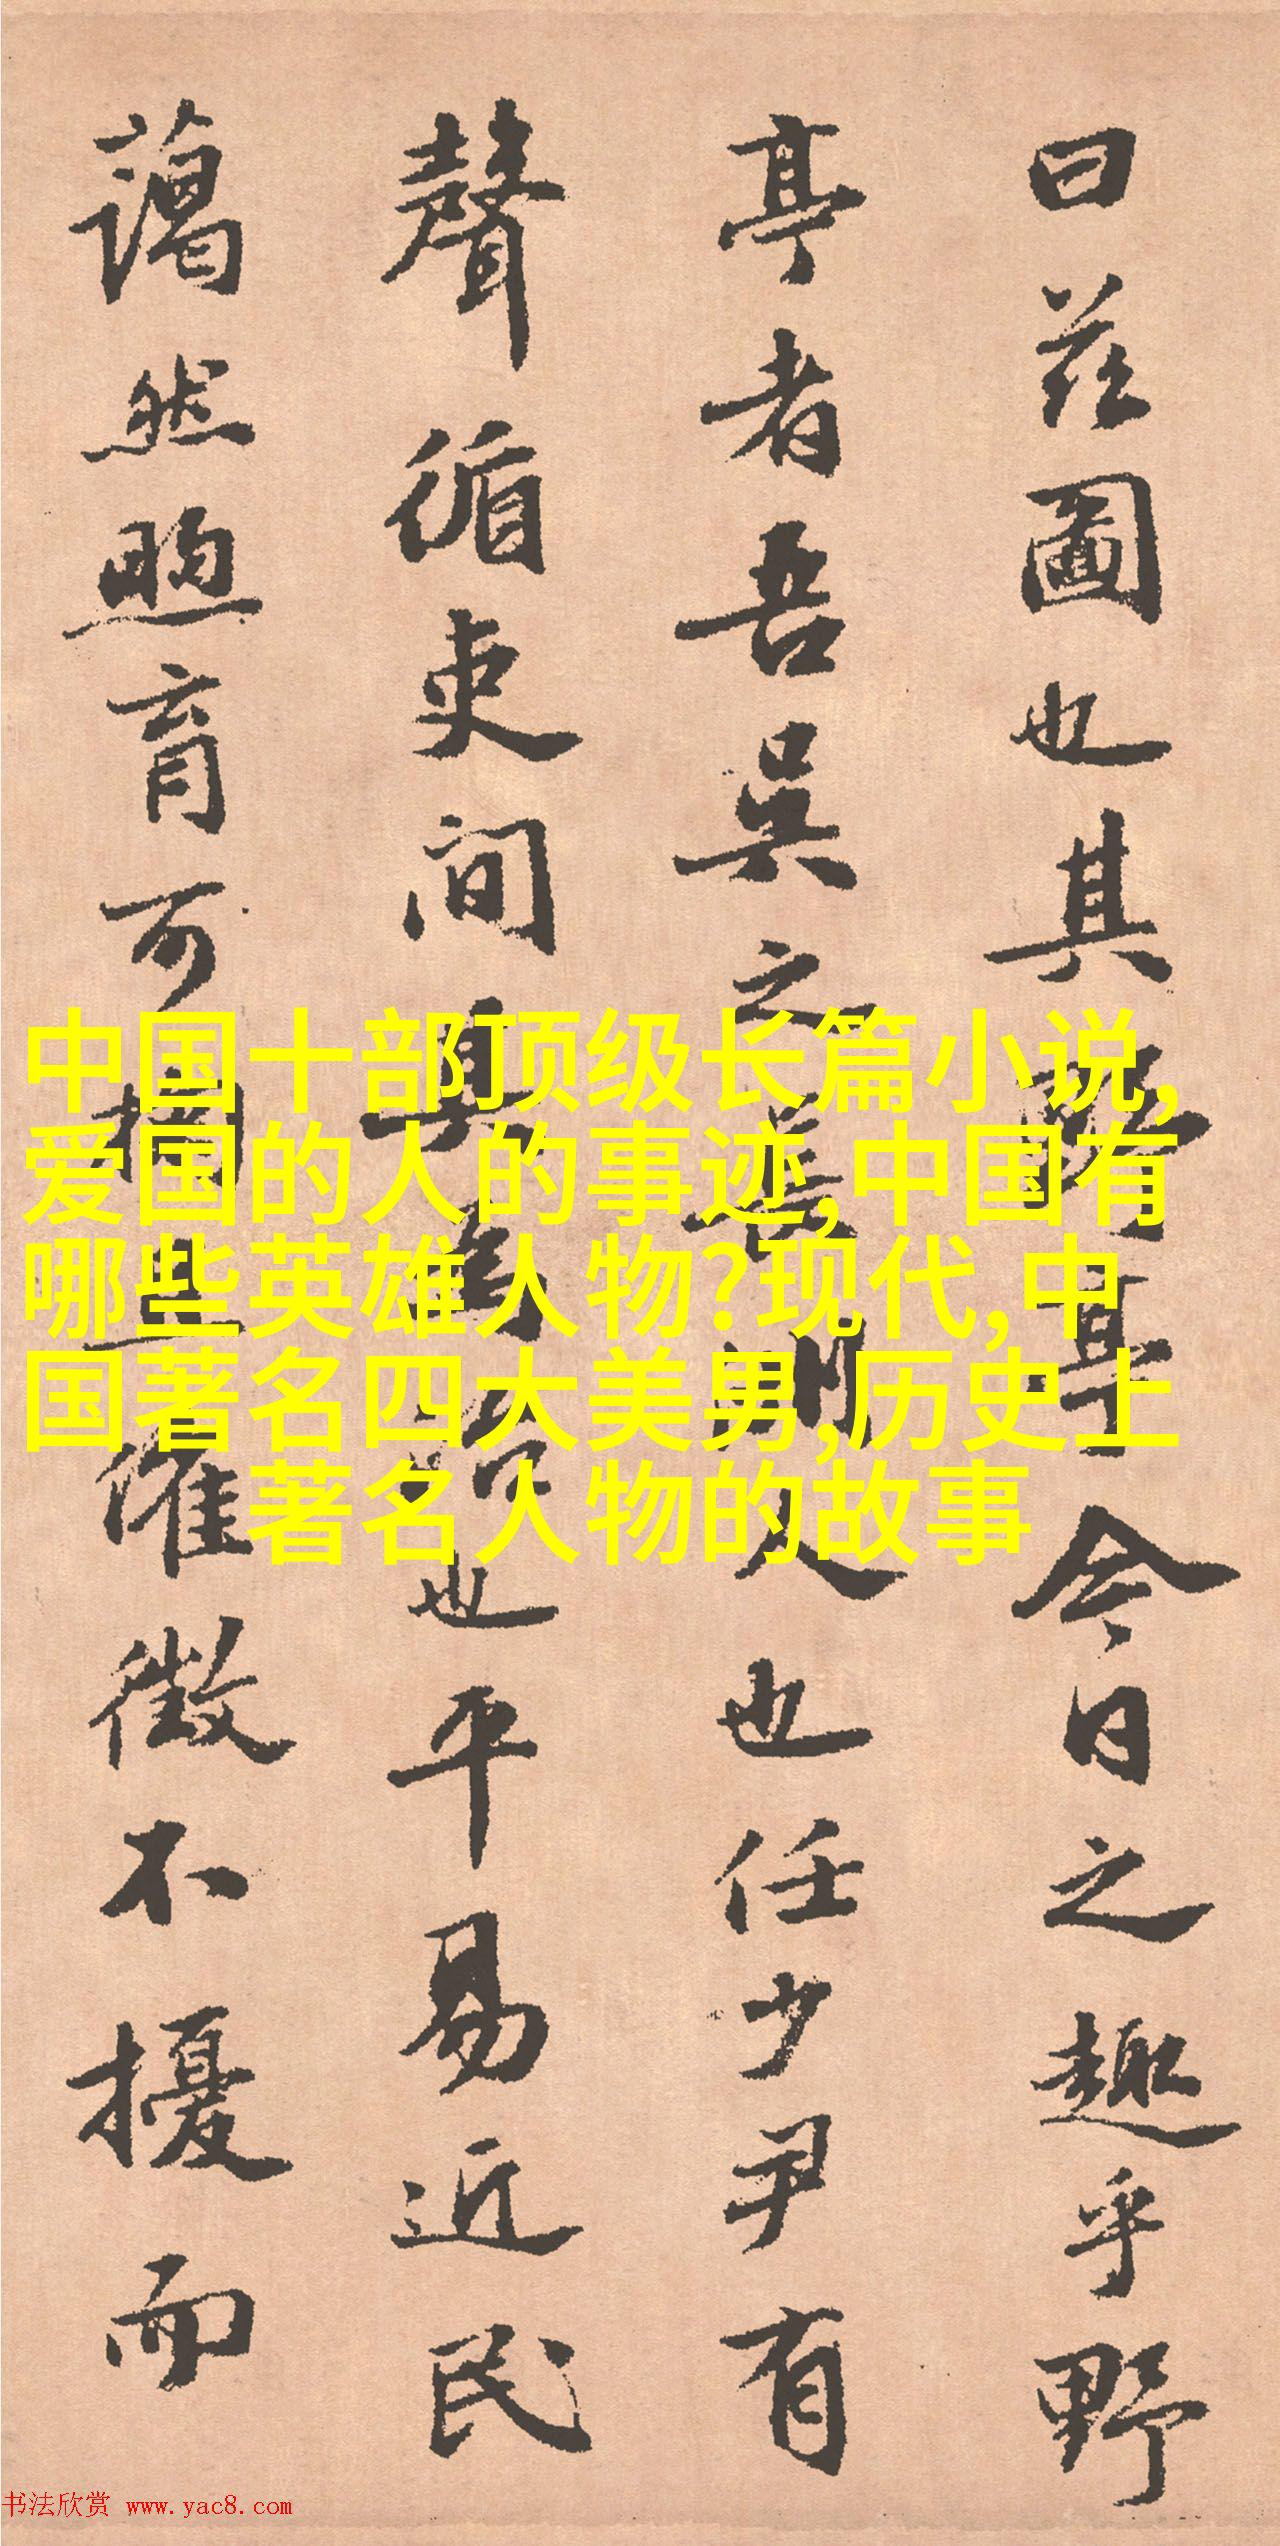 曰茲圖也其野亭今日之趣乎野
亭者吾吳之人也任少尹有
聲循吏間其為治也平易近民
藹然煦育可掬且催徵不擾而
中国十部顶级长篇小说,
爱国的人的事迹,中国有
哪些英雄人物?现代,中
国著名四大美男,历史上
著名人物的故事
书法欣赏 www.yac8.com